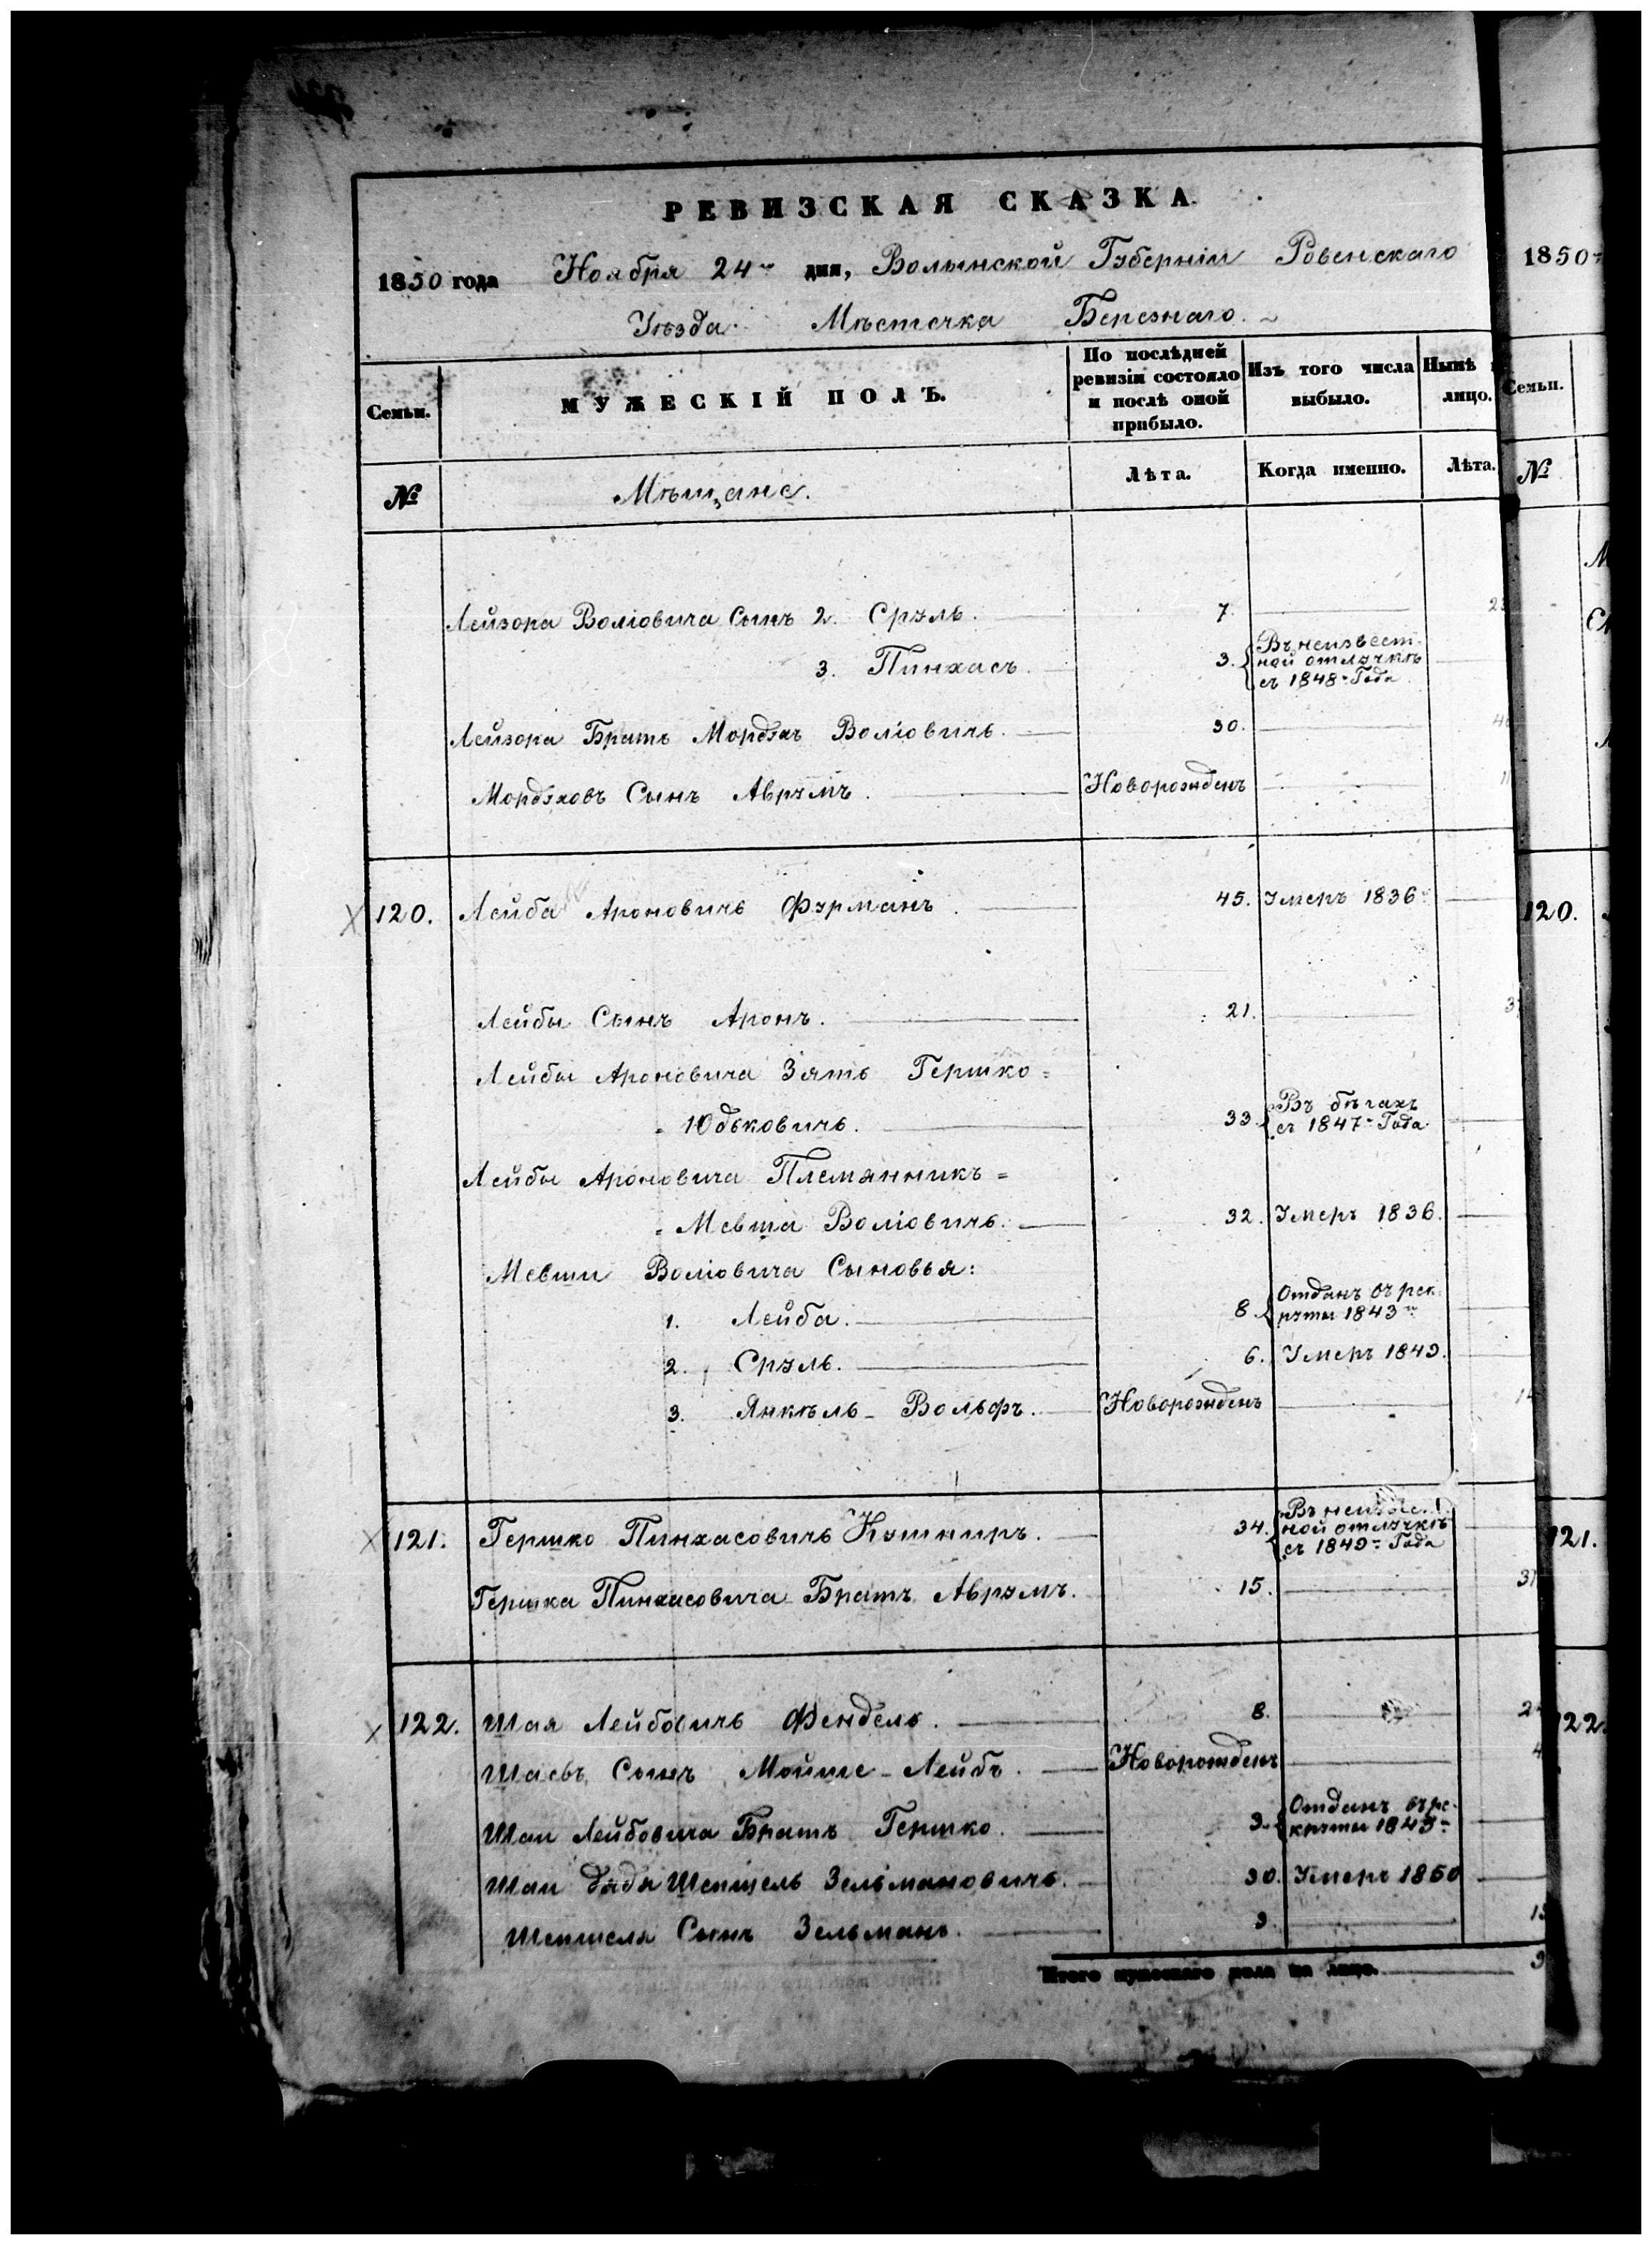 РЕВИЗСКАЯ СКАЗКА.
1850 года Ноября 24го дня, Волынской Губерніи Ровенскаго
Уѣзда Мѣстечка Березнаго.
Семьи.
МУЖЕСКІЙ ПОЛЪ.
По послѣдней ревизіи состояло и послѣ оной прибыло.
Изъ того числа выбыло.
Нынѣ
лицо.
№
Мѣщане.
Лѣта.
Когда именно.
Лѣта.
Лейзора Воліовича Сынъ 2. Сруль. 7.
3. Пинхасъ. 3. Въ неизвест-
ной отлучкѣ
съ 1848го Года
Лейзора Братъ Мордухъ Воліовичъ. 30.
Мордуховъ Сынъ Аврумъ. Новорожденъ
120. Лейба Ароновичъ Фурманъ. 45. Умеръ 1836
Лейбы Сынъ Аронъ. 21.
Лейбы Ароновича Зять Гершко =
= Юдьковичъ. 33. Въ бѣгахъ
съ 1847го Года
Лейбы Ароновича Племянникъ =
= Мевша Воліовичъ. 32. Умеръ 1836.
Мевши Воліовича Сыновья:
1. Лейба. 8. Отданъ въ рек-
руты 1843го
2. Сруль. 6. Умеръ 1849.
3. Янкѣль-Вольфъ. Новорожденъ
121. Гершко Пинхасовичъ Кушниръ. 34. Въ неизвест-
ной отлучкѣ
съ 1849го Года
Гершка Пинхасовича Братъ Аврумъ. 15.
122. Шая Лейбовичъ Фендель. 8.
Шаевъ Сынъ Мойше-Лейбъ. Новорожденъ
Шаи Лейбовича Братъ Гершко. 9. Отданъ въ ре-
круты 1843го
Шаи дядя Шепшель Зельмановичъ. 30. Умеръ 1850
Шепшеля Сынъ Зельманъ. 9.
Итого мужескаго пола на лицо.
1850
Семьи.
№
120.
121.
122.